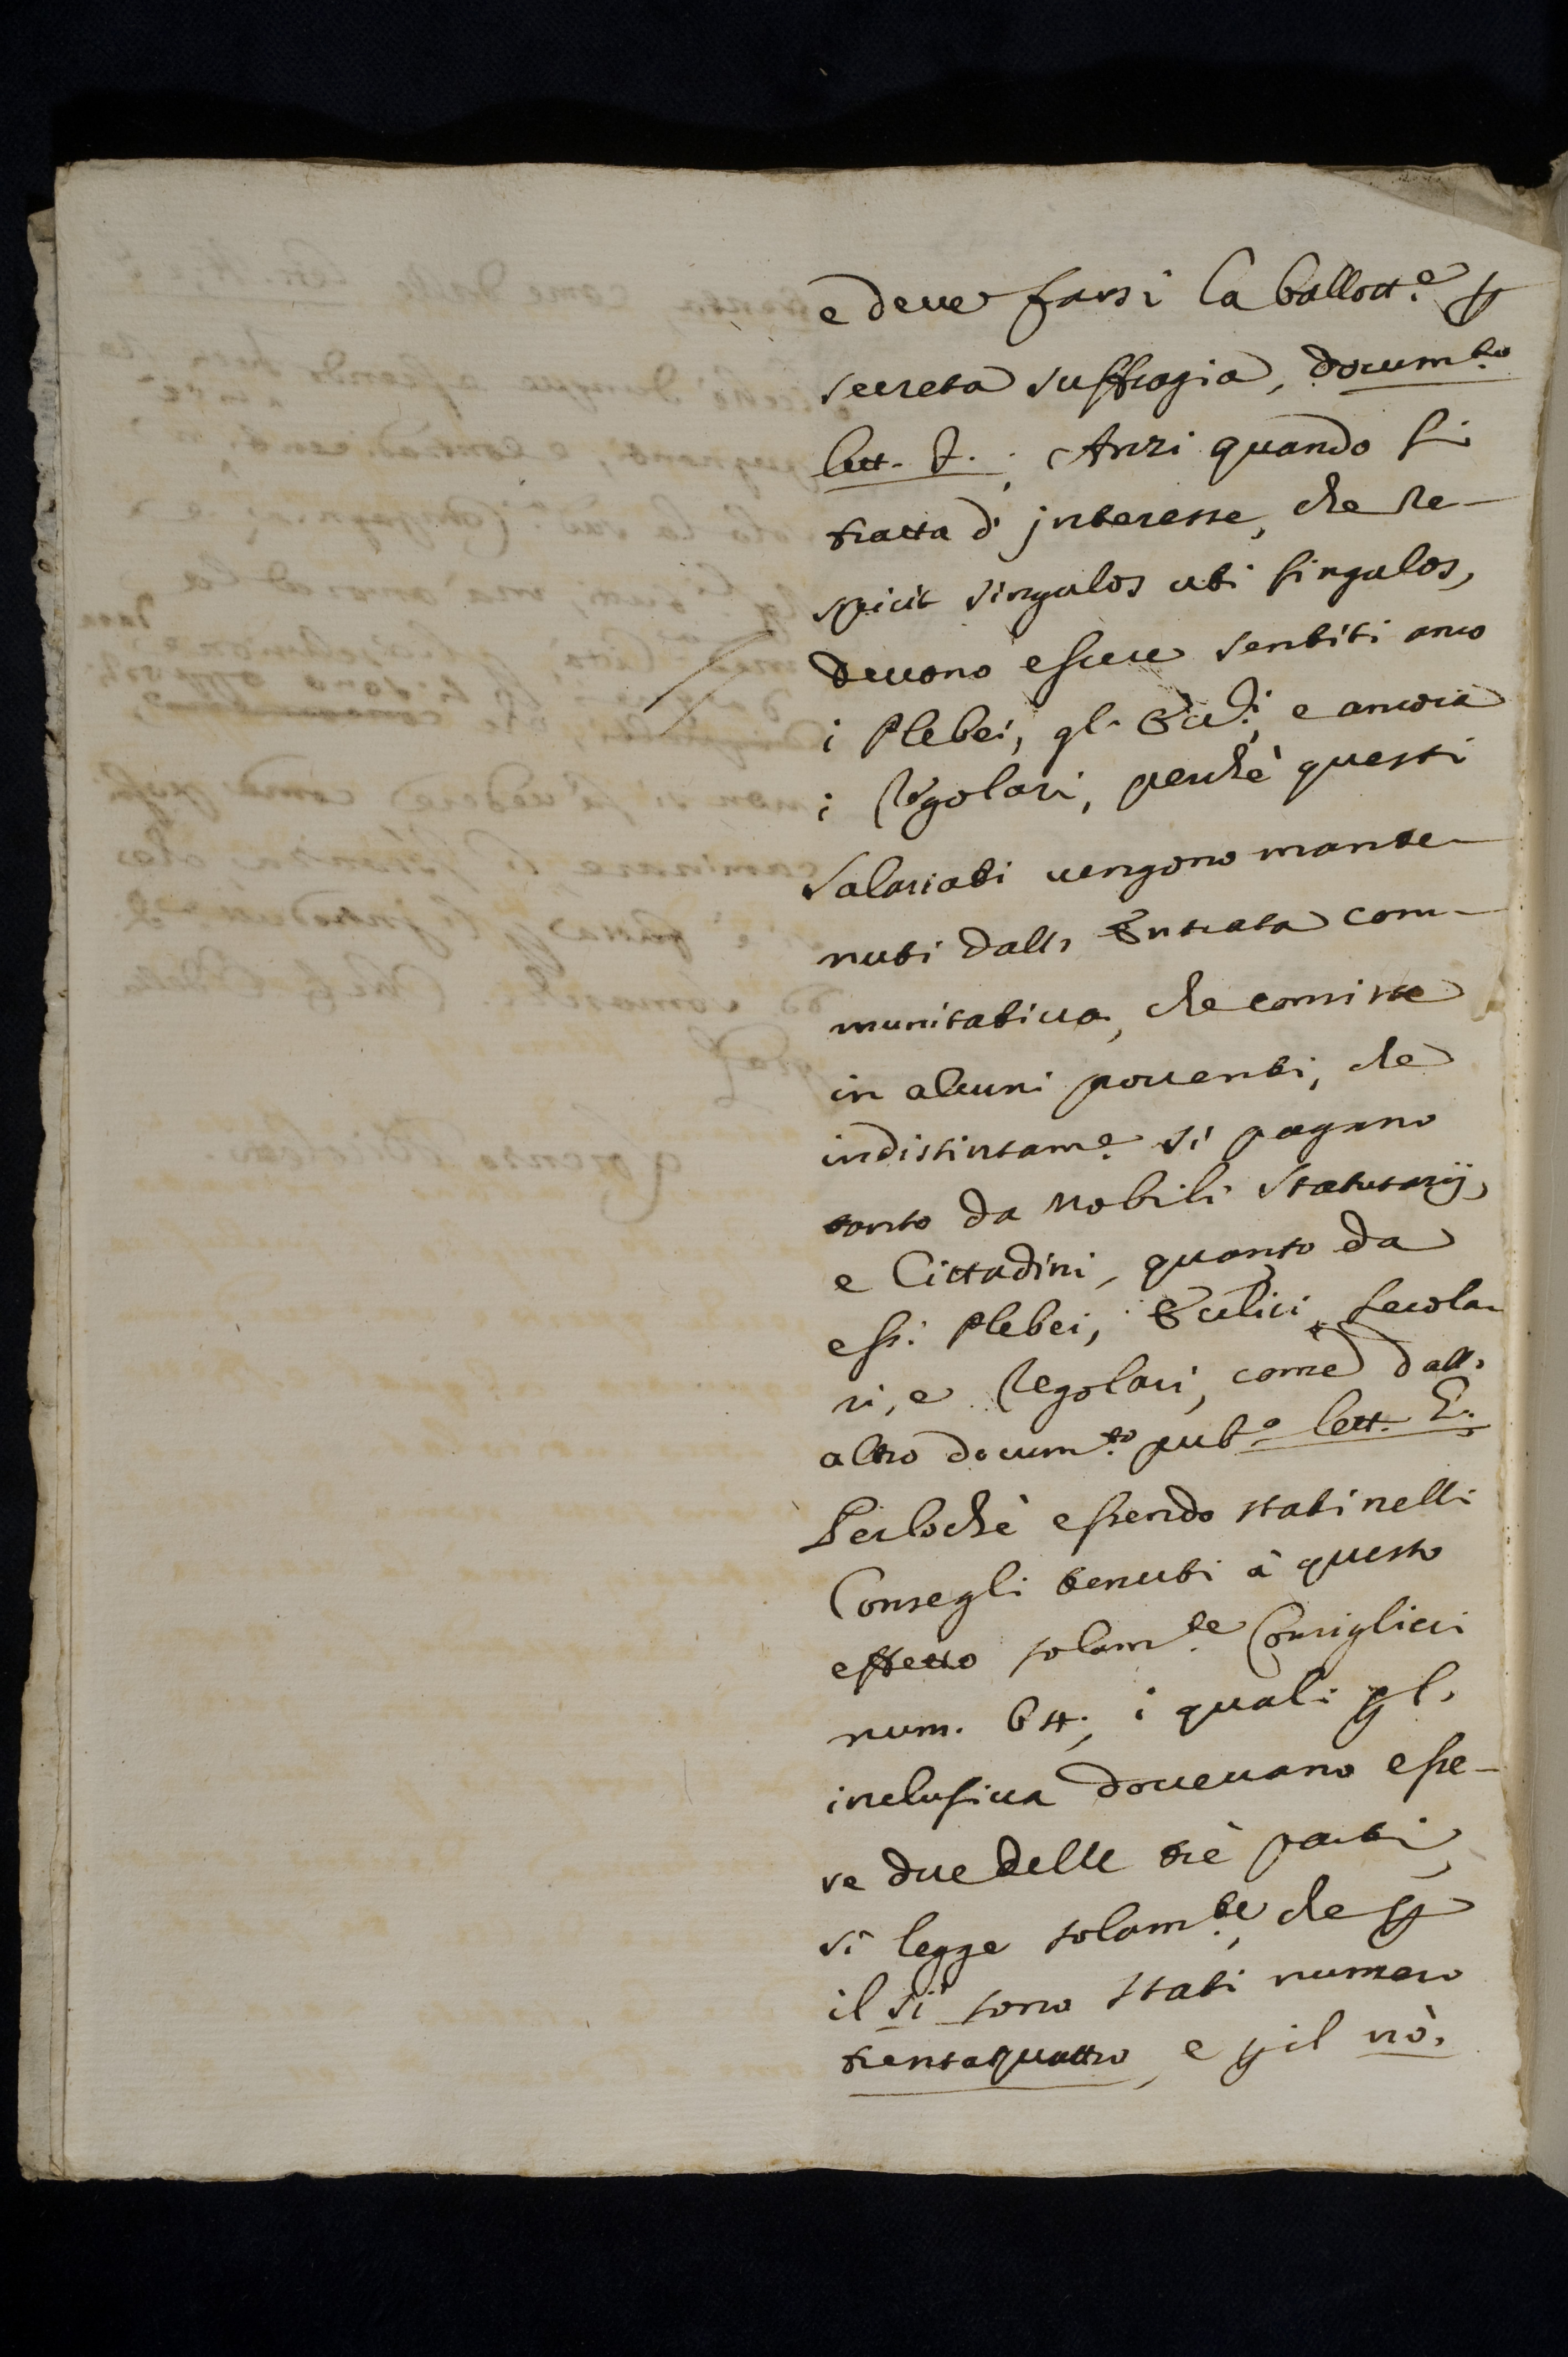 e deve farsi la ballott.e per
secreta suffragia, docum.to
lett. D.; Anzi quando si
tratta d' interesse, che re-
spicit singulos uti singulos,
devono essere sentiti anco
i Plebei, gl' Eccl.i, e ancora
i Regolari, perchè questi
salariati vengono mante-
nuti dall' Entrata com-
munitativa, che consiste
in alcuni proventi, che
indistintam.e si pagano
tanto da Nobili Statutarij,
e Cittadini, quanto da
essi Plebei, Eccl.ici secola-
ri, e Regolari, come dall'
altro docum.to pub.o lett. E.
Perlochè essendo stati nelli
Consegli tenuti à questo
effetto solam.te Consiglieri
num. i quali per l'
inclusiva dovevano esse-
re due delle trè parti,
si legge solam.te, che per
il si sono stati numero
trentaquattro, e per il nò,